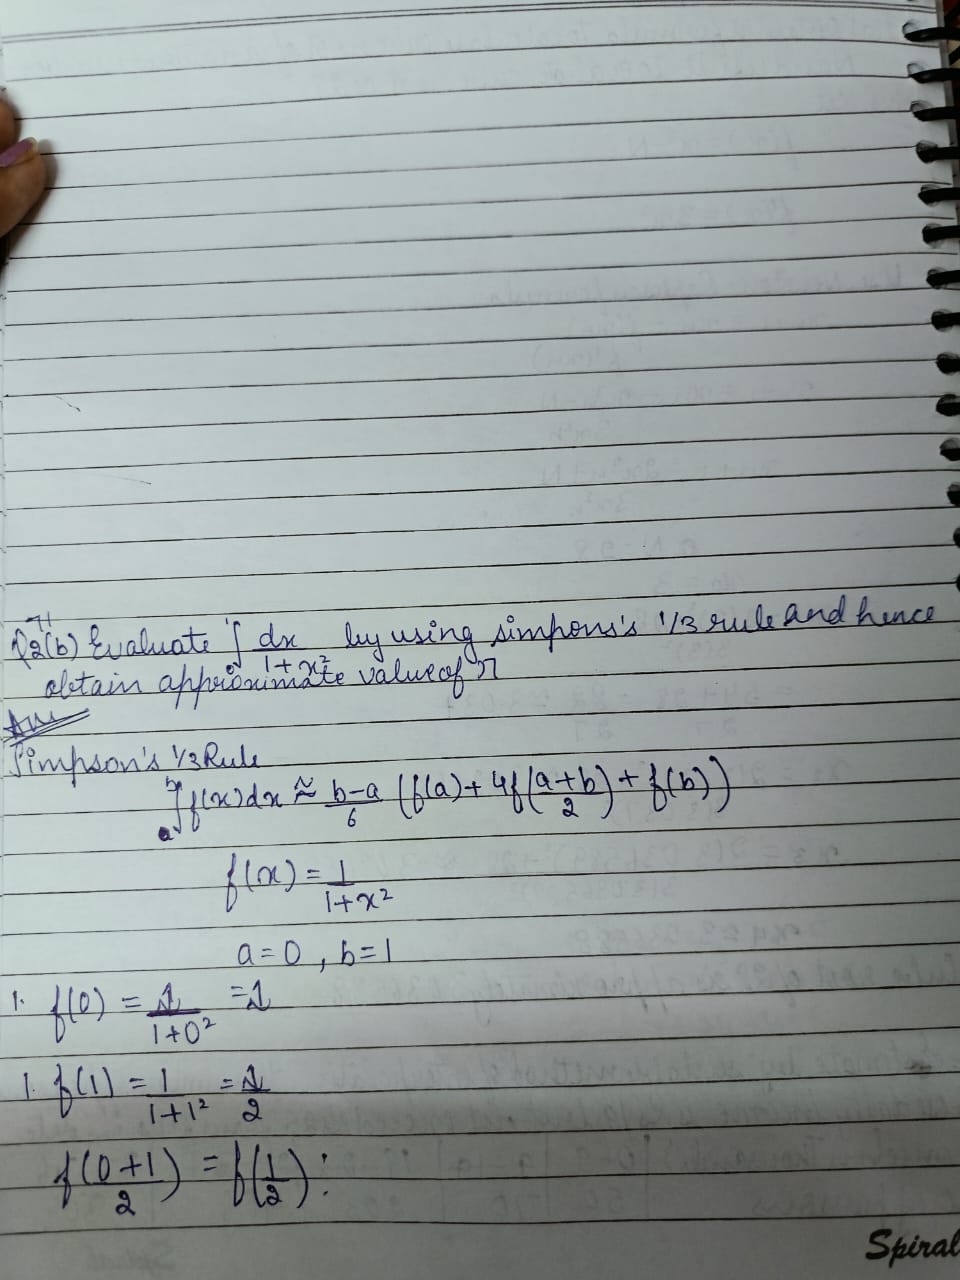 Q2(b) Evaluate ∫₀¹ dx/(1+x²) by using simpons's 1/3 rule and hence
obtain approximate value of π
Ans
Simpson's 1/3 Rule
∫ₐᵇ f(x)dx ≈ (b-a)/6 (f(a) + 4f((a+b)/2) + f(b))
f(x) = 1/(1+x²)
a=0, b=1
1. f(0) = 1/(1+0²) = 1
1. f(1) = 1/(1+1²) = 1/2
f((0+1)/2) = f(1/2):
Spiral